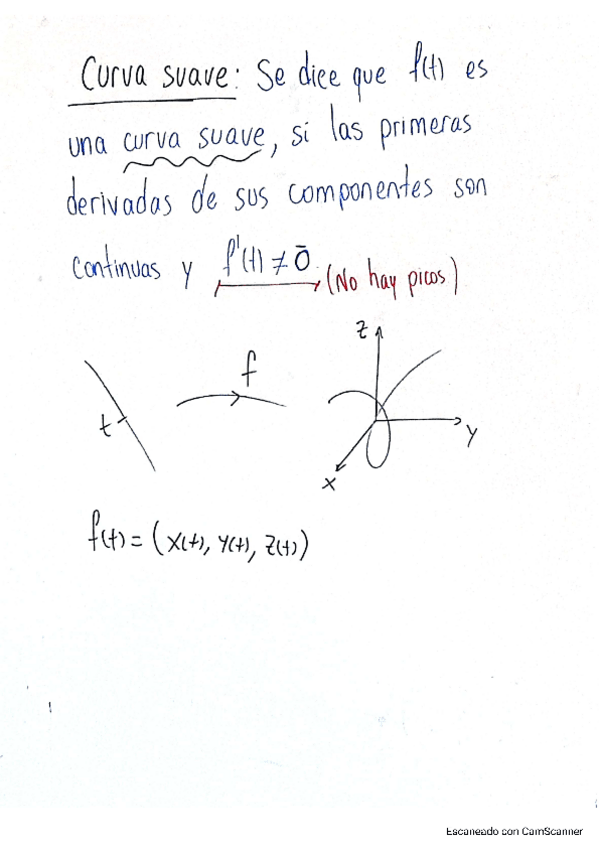 Curva suave: Se dice que f(t) es
una curva suave, si las primeras
derivadas de sus componentes son
continuas y f'(t) ≠ 0̄. (No hay picos)
z
f
t
y
x
f(t) = (x(t), y(t), z(t))
Escaneado con CamScanner